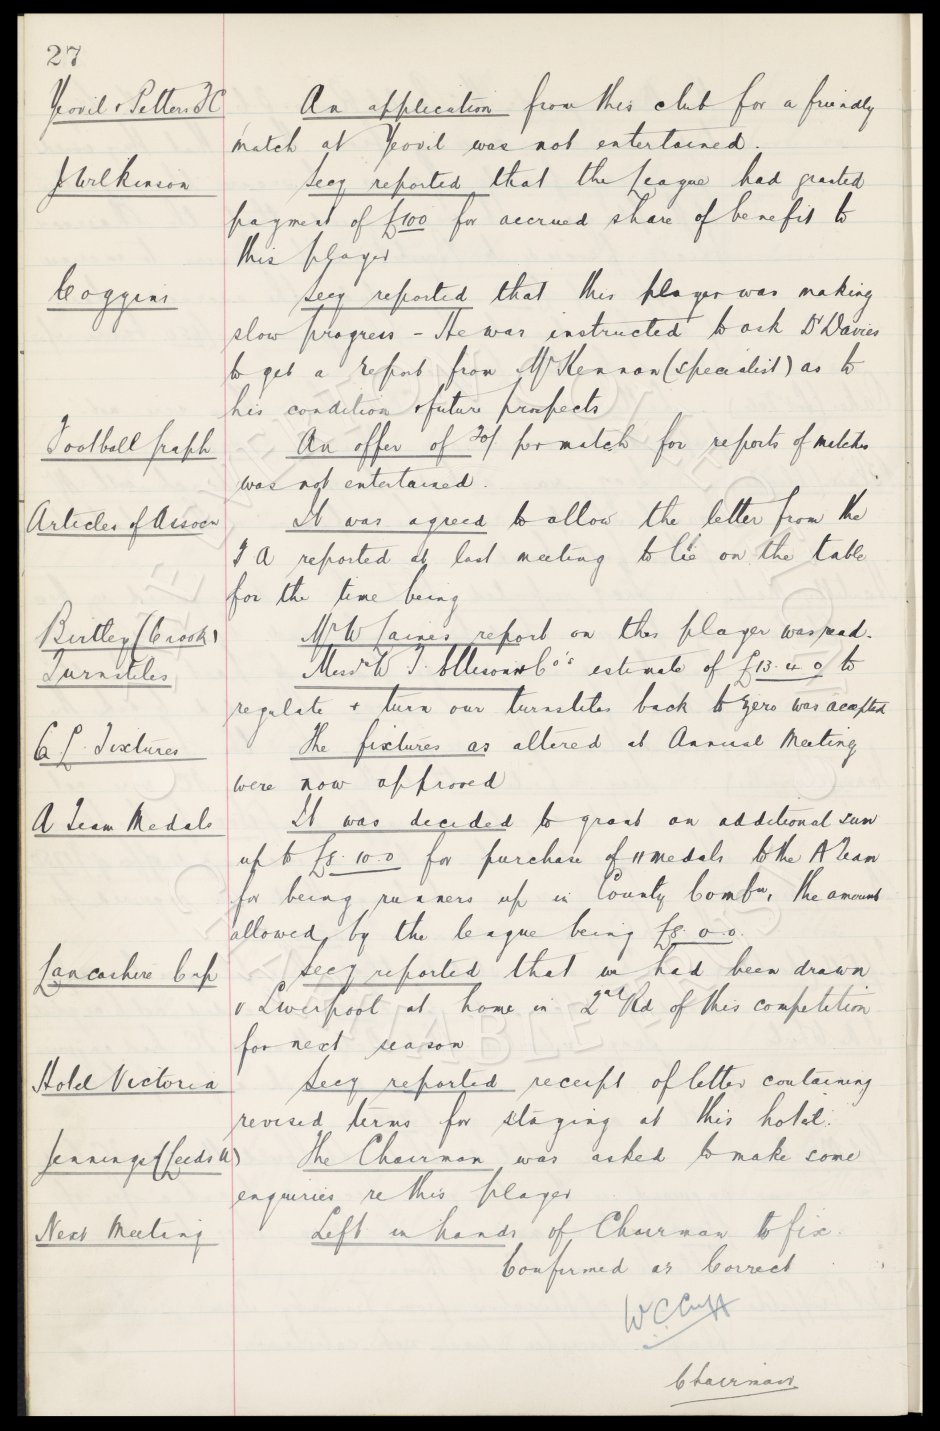 27
Yeovil & Petters F C An application from this club for a friendly
match at Yeovil was not entertained.
J Wilkinson Secy reported that the League had granted
payment of £100 for accrued share of benefit to
this player
Coggins Secy reported that this player was making
slow progress - He was instructed to ask Dr Davies
to get a report from McKennan (specialist) as to
his condition & future prospects
Football Graph An offer of 30/ per match for reports of matches
was not entertained.
Articles of Assocn It was agreed to allow the letter from the
F A reported at last meeting to lie on the table
for the time being
Birtley (Crook) Mr W Saines report on this player was read.
Turnstiles Messrs W T Ellison & Co's estimate of £13.4.0 to
regulate & turn our turnstiles back to zero was accepted
C L Fixtures The fixtures as altered at Annual Meeting
were now approved
A Team Medals It was decided to grant an additional sum
up to £8.10.0 for purchase of 11 medals to the A Team
for being runners up in County Combn, the amount
allowed by the league being £8.0.0.
Lancashire Cup Secy reported that we had been drawn
v Liverpool at home in 2nd Rd of this competition
for next season
Hotel Victoria Secy reported receipt of letter containing
revised terms for staying at this hotel.
Jennings (Leeds U) The Chairman was asked to make some
enquiries re this player
Next Meeting Left in hands of Chairman to fix.
Confirmed as Correct
W C Cuff
Chairman